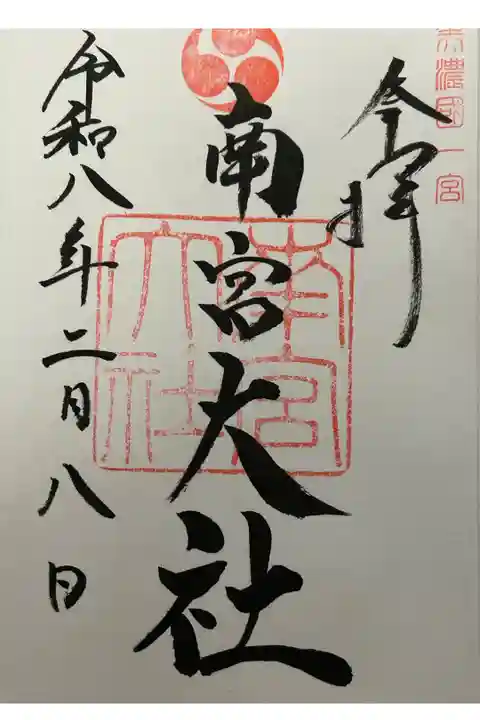 美濃國一宮
奉拝
南宮大社
南宮
大社
令和八年二月八日